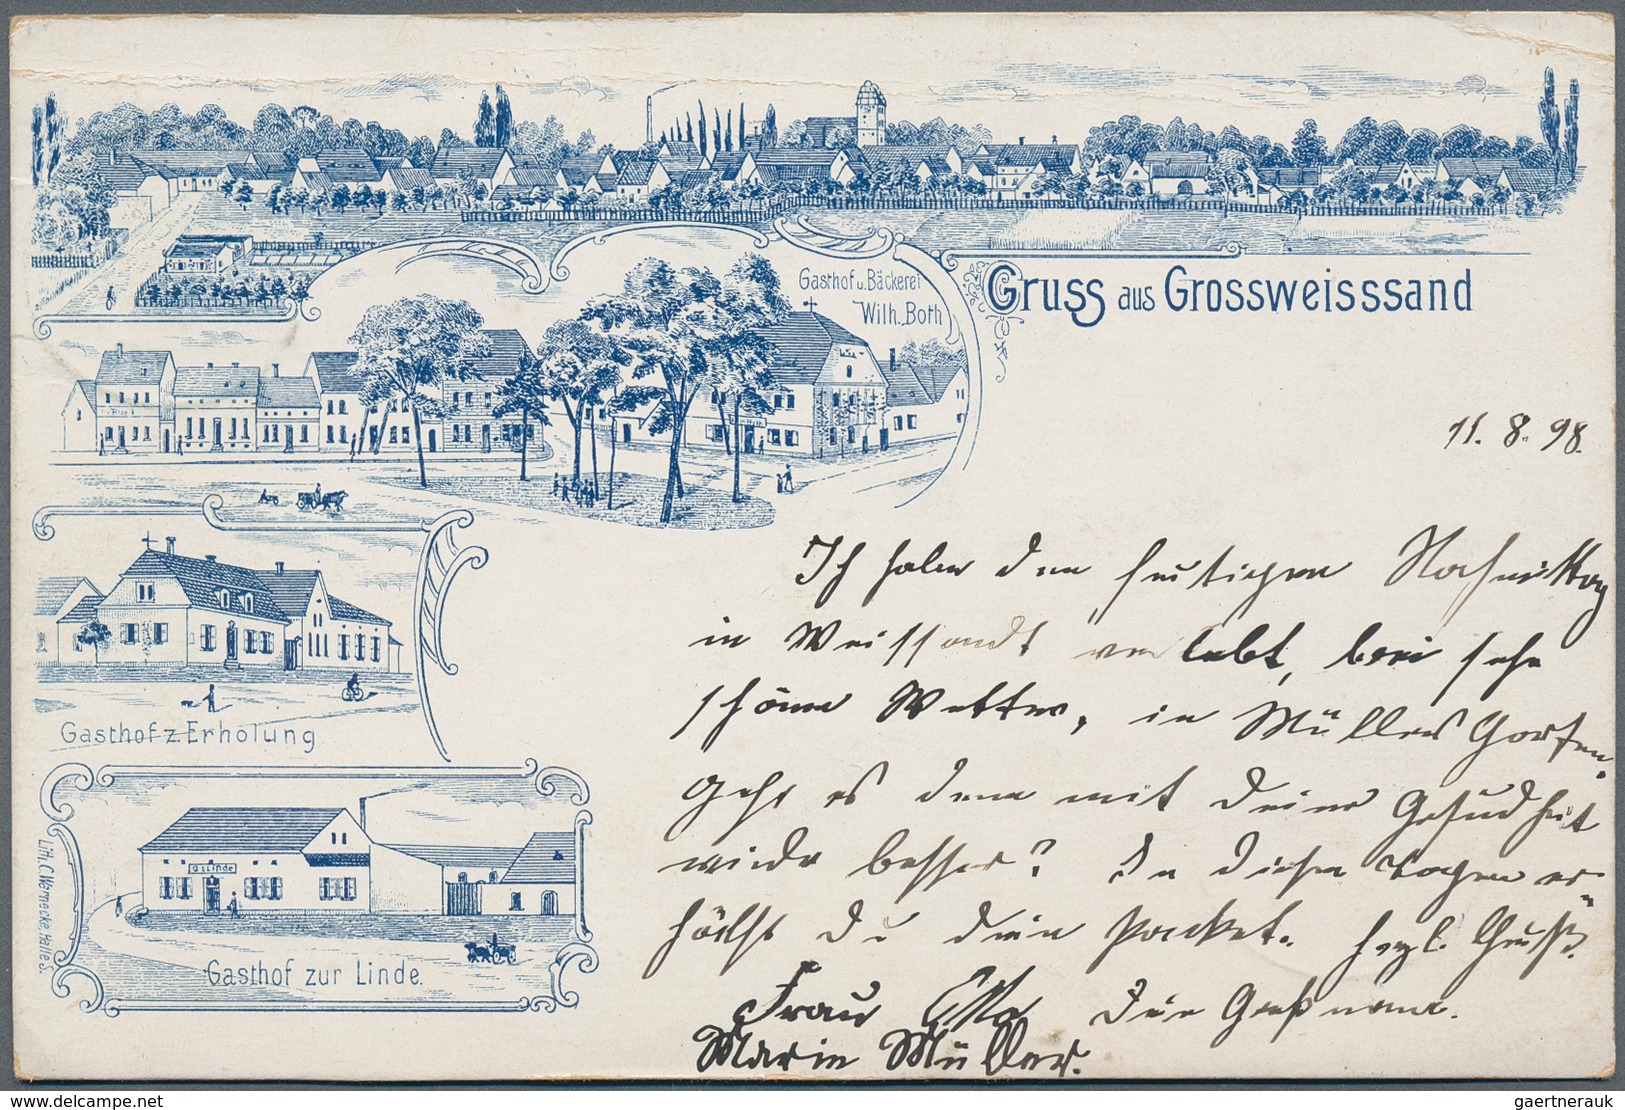 Gruss aus Grossweisssand
Gasthof u. Bäckerei
Wilh. Both
11. 8. 98.
Ich habe den heutigen Nachmittag
in Weissandt verlebt, bei sehr
schönen Wetter, in Müllers Garten.
Geht es denn mit Deiner Gesundheit
wieder besser? In diesen Tagen er-
hälst Du Dein Packet. Herzl. Gruß.
Frau Otto Deine Großmama.
Marie Müller.
Gasthof z. Erholung
G. z. Linde
Gasthof zur Linde.
Lith. C. Wernecke, Halle S.
delcampe.net
gaertnerauk